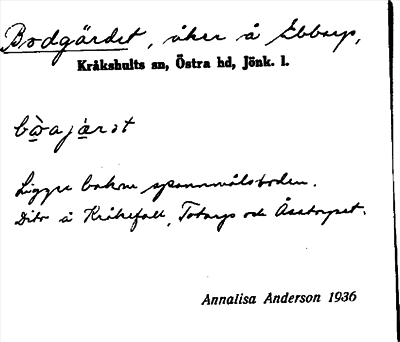 Bodgärdet, åker å Ebbarp,
Kråkshults sn, Östra hd, Jönk. l.
bòajárɔt
Ligger bakom spannmålsboden.
Dito å Kråkefall, Totarp och Åsatorpet.
Annalisa Anderson 1936